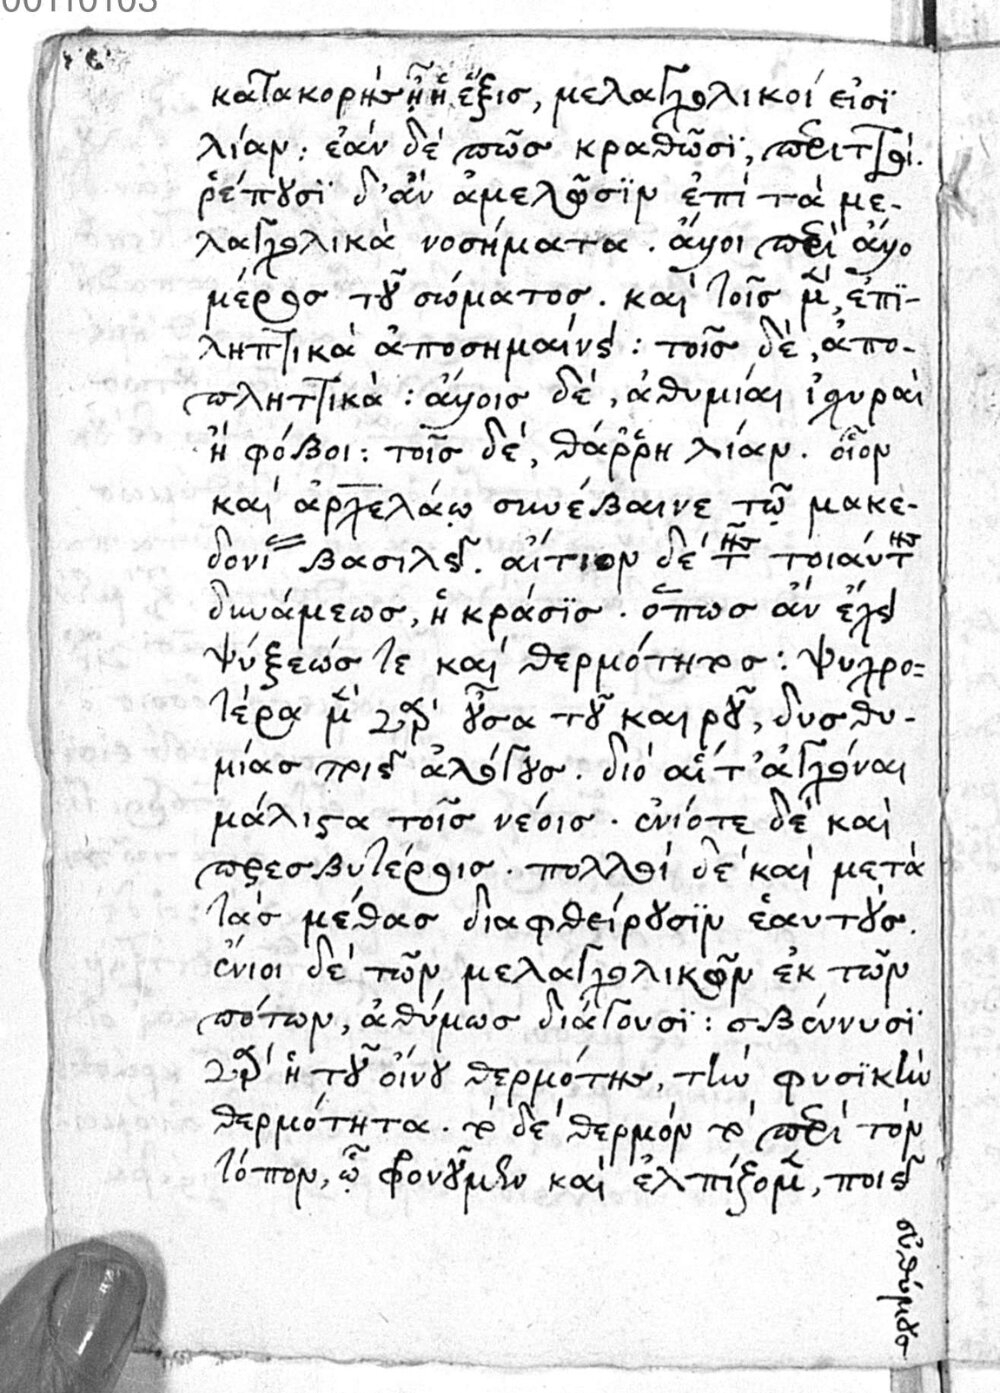 00110103
κατακορὴσ ᾖ ἡ ἕξισ, μελαγχολικοί εἰσϊ
λίαν: ἐὰν δέ πωσ κραθῶσϊ, περιττοί.
ῥέπουσϊ δ' ἂν ἀμελῶσϊν ἐπὶ τὰ με-
λαγχολικὰ νοσήματα. ἄλλοι περὶ ἄλλο
μέροσ τοῦ σώματοσ. καὶ τοῖσ μὲν, ἐπϊ-
ληπτικὰ ἀποσημαίνει: τοῖσ δὲ, ἀπο-
πληκτικὰ: ἄλλοισ δὲ, ἀθυμίαι ἰσχυραὶ
ἢ φόβοι: τοῖσ δὲ, θάῤῥη λίαν. οἷον
καὶ ἀρχελάῳ συνέβαινε τῷ μακε-
δονίασ βασιλεῖ. αἴτιον δὲ τῆσ τοιαύτησ
δυνάμεωσ, ἡ κράσϊσ. ὅπωσ ἂν ἔχει
ψύξεώσ τε καὶ θερμότητοσ: ψυχρο=
τέρα μὲν γὰρ οὖσα τοῦ καιροῦ, δυσθυ-
μίασ ποιεῖ ἀλόγουσ. διὸ αἵ τ' ἀγχόναι
μάλιστα τοῖσ νέοισ. ἐνίοτε δὲ καὶ
πρεσβυτέροισ. πολλοὶ δὲ καὶ μετὰ
τὰσ μέθασ διαφθείρουσϊν ἑαυτούσ.
ἔνιοι δὲ τῶν μελαγχολικῶν ἐκ τῶν
πότων, ἀθύμωσ διάγουσϊ: σβέννυσϊ
γὰρ ἡ τοῦ οἴνου θερμότησ, τὴν φυσϊκὴν
θερμότητα. τὸ δὲ θερμὸν τὸ περὶ τὸν
τόπον, ᾧ φρονοῦμεν καὶ ἐλπίζομεν, ποιεῖ
εὐθύμουσ